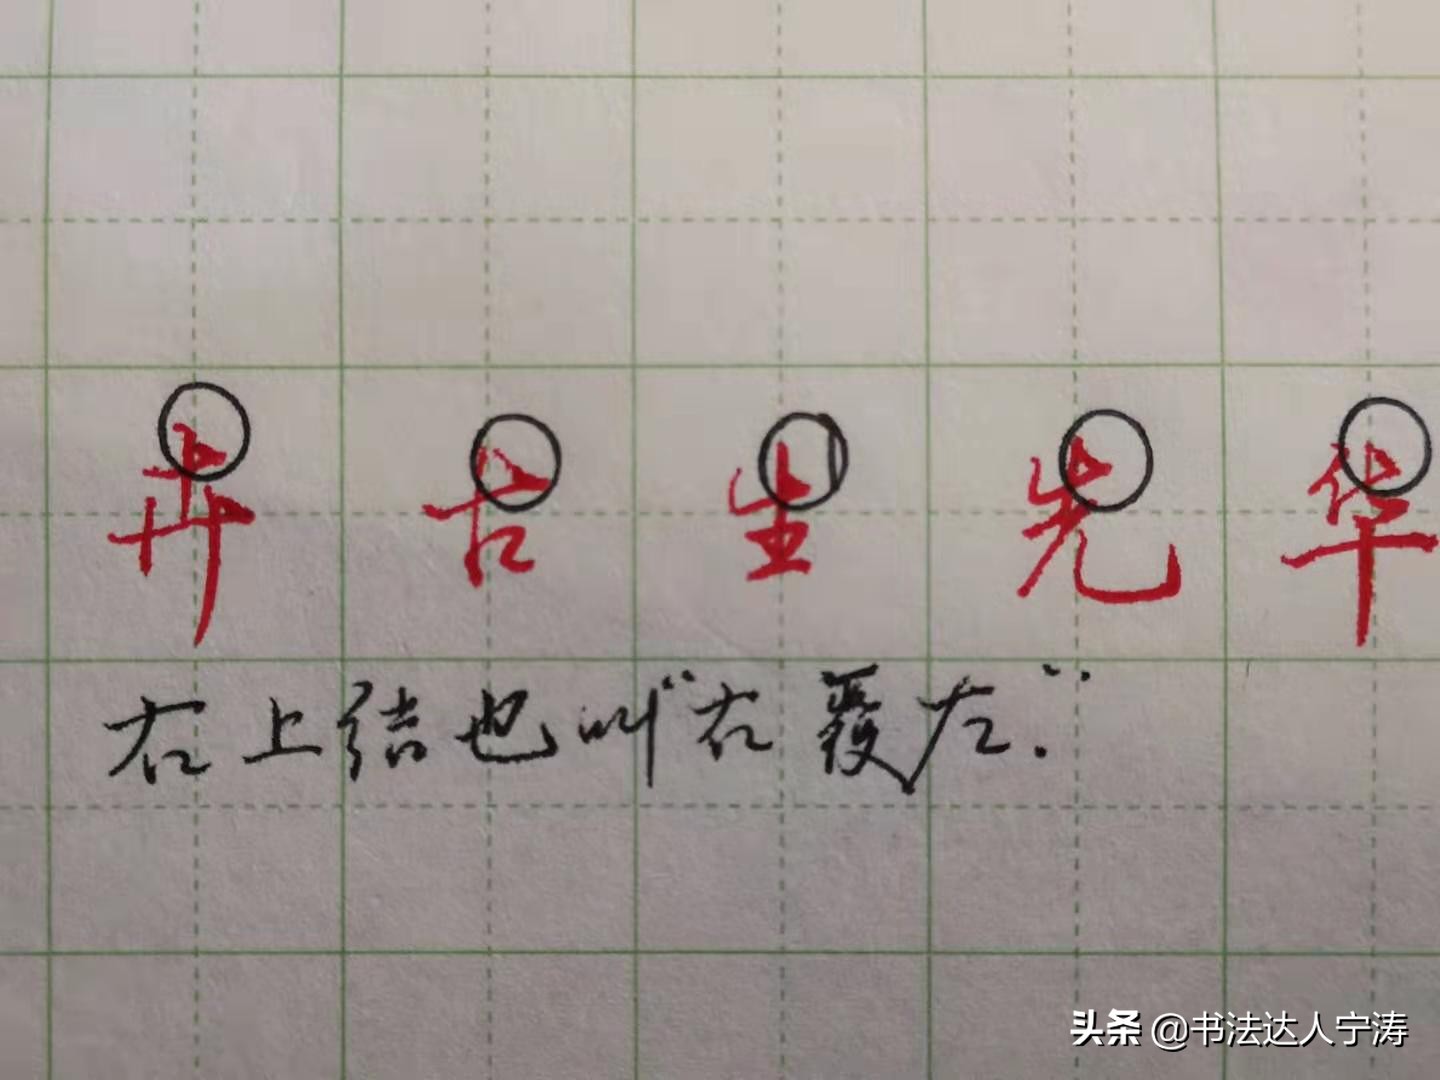 卉古生先华
右上结也叫“右覆左.”
头条 @书法达人宁涛